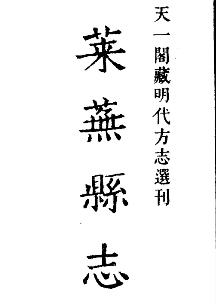 天一閣藏明代方志選刊
萊蕪縣志